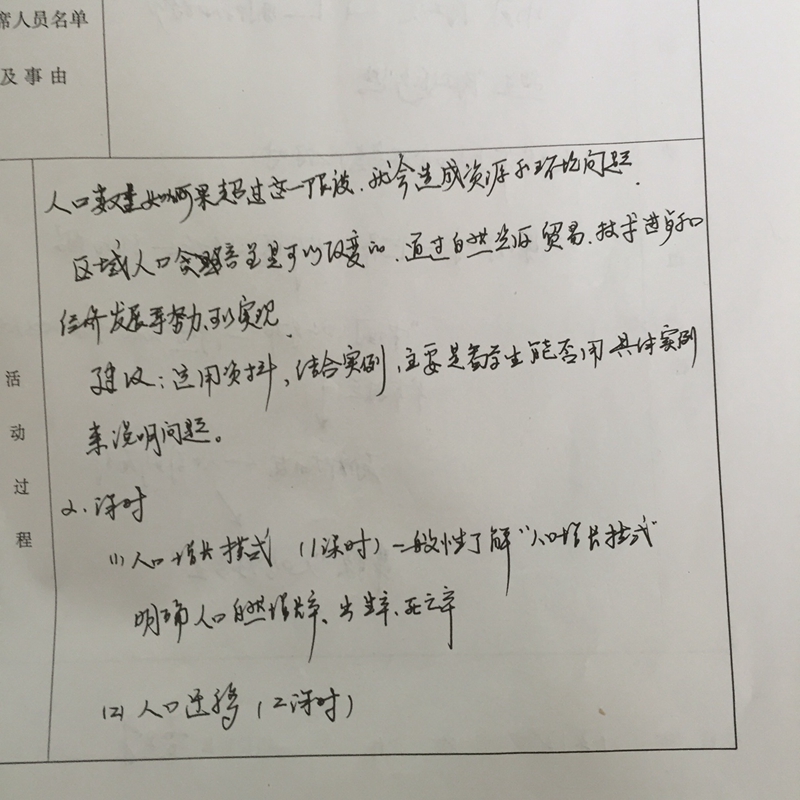 席人员名单
及事由
活动过程
人口数量如果超过这一限设、就会造成资源和环境问题.
区域人口容量是可以改变的、通过自然资源贸易、技术进步和
经济发展等努力、可以实现.
建议：运用资料，结合实例，主要是看学生能否用具体实例
来说明问题。
2、课时
(1) 人口增长模式 (1课时) 一般性了解“人口增长模式”
明确人口自然增长率、出生率、死亡率
(2) 人口迁移 (2课时)